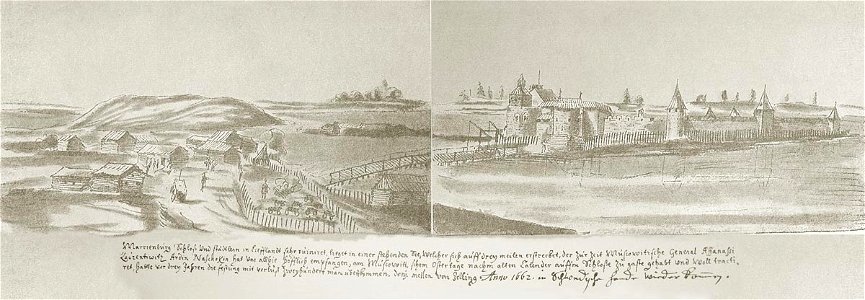 Marrienburg Schloß Und Städtlein in Liefflandt sehr ruiniret, lieget in einer stehenden See, Welcher sich auff drey meilen erstrecket, der Zur Zeit Muscowitische General Affanasi
Ardin Naschokin hat uns allhie höfflich empfangen, am Muscowitischem Ostertage nachm alten Calender auffm Schloße Zu gaste gehabt und woll tracti-
ret hatte vor drey Jahren die festung mit verlust Zweyhundert man überkommen, drey meilen von Anno 1662. in Schwedische hände wieder kommen.